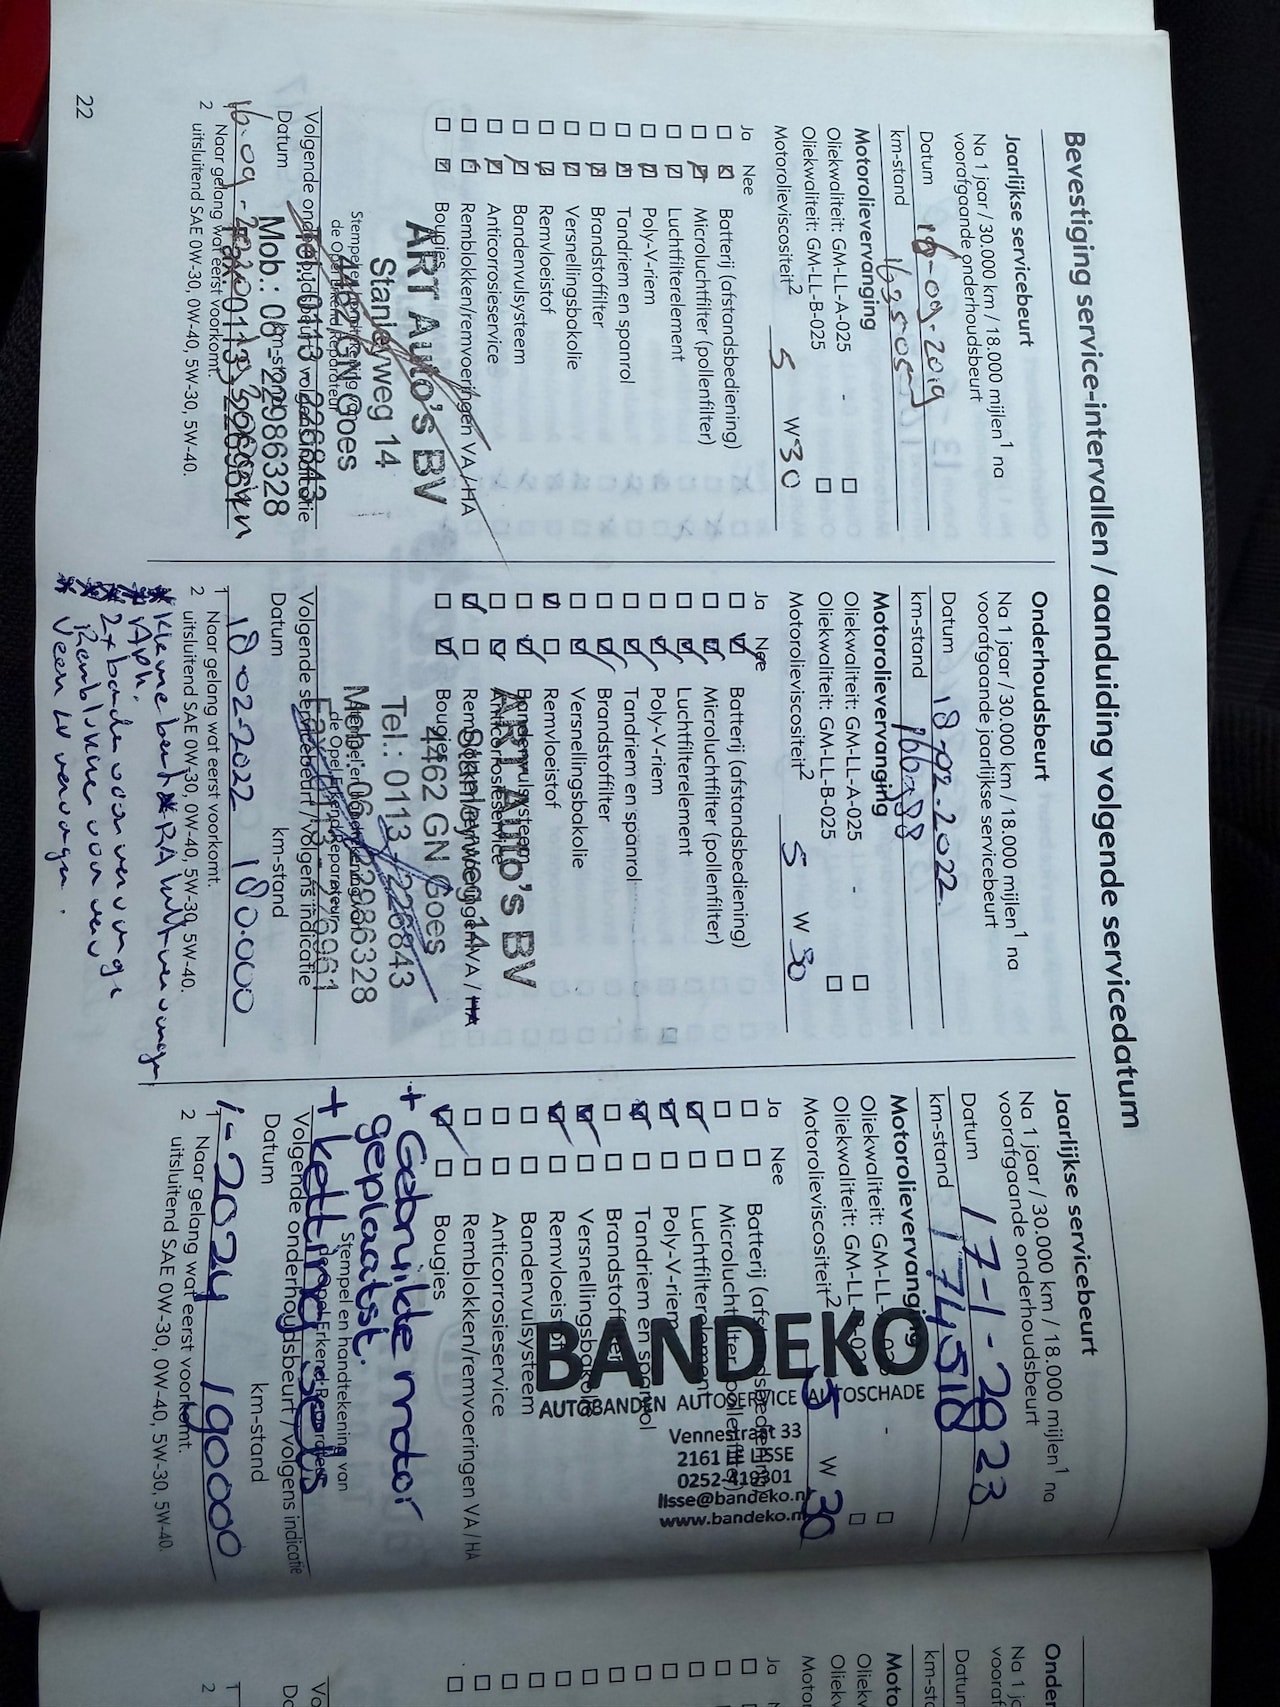 Bevestiging service-intervallen / aanduiding volgende servicedatum
Jaarlijkse servicebeurt
Na 1 jaar / 30.000 km / 18.000 mijlen1 na
voorafgaande onderhoudsbeurt
Datum 16-09-2019
km-stand
Motorolievervanging
Oliekwaliteit: GM-LL-A-025 -
Oliekwaliteit: GM-LL-B-025
Motorolieviscositeit2 5 W30
Ja Nee
Batterij (afstandsbediening)
Microluchtfilter (pollenfilter)
Luchtfilterelement
Poly-V-riem
Tandriem en spanrol
Brandstoffilter
Versnellingsbakolie
Remvloeistof
Bandenvulsysteem
Anticorrosieservice
Remblokken/remvoeringen VA / HA
Bougies
ART Auto's BV
Stanleyweg 14
4462 GN Goes
Tel.: 0113-226843
Mob.: 06-22986328
Stempel en handtekening van
de Opel Erkend Reparateur
Volgende onderhoudsbeurt / volgens indicatie
Datum km-stand
16-09-2020
1 Naar gelang wat eerst voorkomt.
2 uitsluitend SAE 0W-30, 0W-40, 5W-30, 5W-40.
22
Onderhoudsbeurt
Na 1 jaar / 30.000 km / 18.000 mijlen1 na
voorafgaande jaarlijkse servicebeurt
Datum 18-02-2022
km-stand
Motorolievervanging
Oliekwaliteit: GM-LL-A-025 -
Oliekwaliteit: GM-LL-B-025
Motorolieviscositeit2 5 W 30
Ja Nee
Batterij (afstandsbediening)
Microluchtfilter (pollenfilter)
Luchtfilterelement
Poly-V-riem
Tandriem en spanrol
Brandstoffilter
Versnellingsbakolie
Remvloeistof
Bandenvulsysteem
Anticorrosieservice
Remblokken/remvoeringen VA / HA
Bougies
ART Auto's BV
Stanleyweg 14
4462 GN Goes
Tel.: 0113-226843
Mob.: 06-22986328
Stempel en handtekening van
de Opel Erkend Reparateur
Volgende servicebeurt / volgens indicatie
Datum km-stand
18-02-2022 180.000
1 Naar gelang wat eerst voorkomt.
2 uitsluitend SAE 0W-30, 0W-40, 5W-30, 5W-40.
* Kleine beurt * RA
* Apk.
* 2x banden voor
*
Jaarlijkse servicebeurt
Na 1 jaar / 30.000 km / 18.000 mijlen1 na
voorafgaande onderhoudsbeurt
Datum 17-1-2023
km-stand 174510
Motorolievervanging
Oliekwaliteit: GM-LL-
Oliekwaliteit: GM-LL-B-025
Motorolieviscositeit2 5 W 30
Ja Nee
Batterij (afstandsbediening)
Microluchtfilter (pollenfilter)
Luchtfilterelement
Poly-V-riem
Tandriem en spanrol
Brandstoffilter
Versnellingsbakolie
Remvloeistof
Bandenvulsysteem
Anticorrosieservice
Remblokken/remvoeringen VA / HA
Bougies
BANDEKO
AUTOBANDEN AUTOSERVICE AUTOSCHADE
Vennestraat 33
2161 LISSE
0252-419301
lisse@bandeko.nl
www.bandeko.nl
+ Gebruikte motor
geplaatst.
+ ketting
Stempel en handtekening van
Volgende onderhoudsbeurt / volgens indicatie
Datum km-stand
1-2024 190000
1 Naar gelang wat eerst voorkomt.
2 uitsluitend SAE 0W-30, 0W-40, 5W-30, 5W-40.
Onder
Na 1 ja
vooraf
Datum
km-sta
Moto
Oliekw
Oliekv
Motor
Ja
Vo
1
2